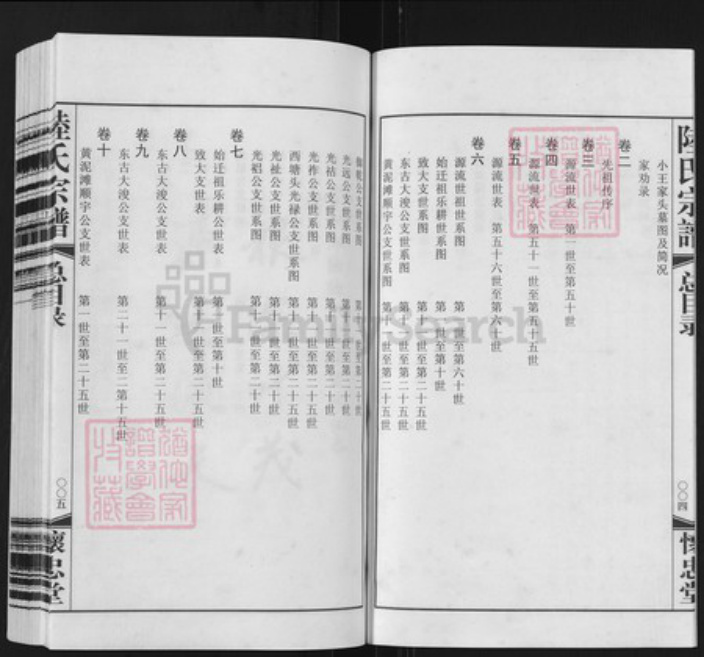 陆氏宗谱
总目录
〇〇四
怀忠堂
小王家头墓图及简况
家劝录
卷二
先祖传序
卷三
源流世表 第一世至第五十世
卷四
源流世表 第五十一世至第五十五世
卷五
源流世表 第五十六世至第六十世
卷六
源流世祖世系图 第一世至第六十世
始迁祖乐耕世系图 第一世至第十世
致大支世系图 第十一世至第二十五世
东古大浚公支世系图 第十一世至第二十五世
黄泥滩顺宇公支世系图 第十一世至第二十五世
公支世系图
光远公支世系图
光祜公支世系图
光祚公支世系图 第十一世至第二十五世
西塘头光禄公支世系图 第十一世至第二十五世
光祉公支世系图 第十一世至第二十世
光祒公支世系图 第十一世至第二十世
卷七
始迁祖乐耕公世表 第一世至第十世
致大支世表 第十一世至第二十五世
卷八
东古大浚公支世表 第十一世至第二十五世
卷九
东古大浚公支世表 第二十一世至二第十五世
卷十
黄泥滩顺宇公支世表 第一世至第二十五世
陸氏宗譜
总目录
〇〇五
懷忠堂
FamilySearch